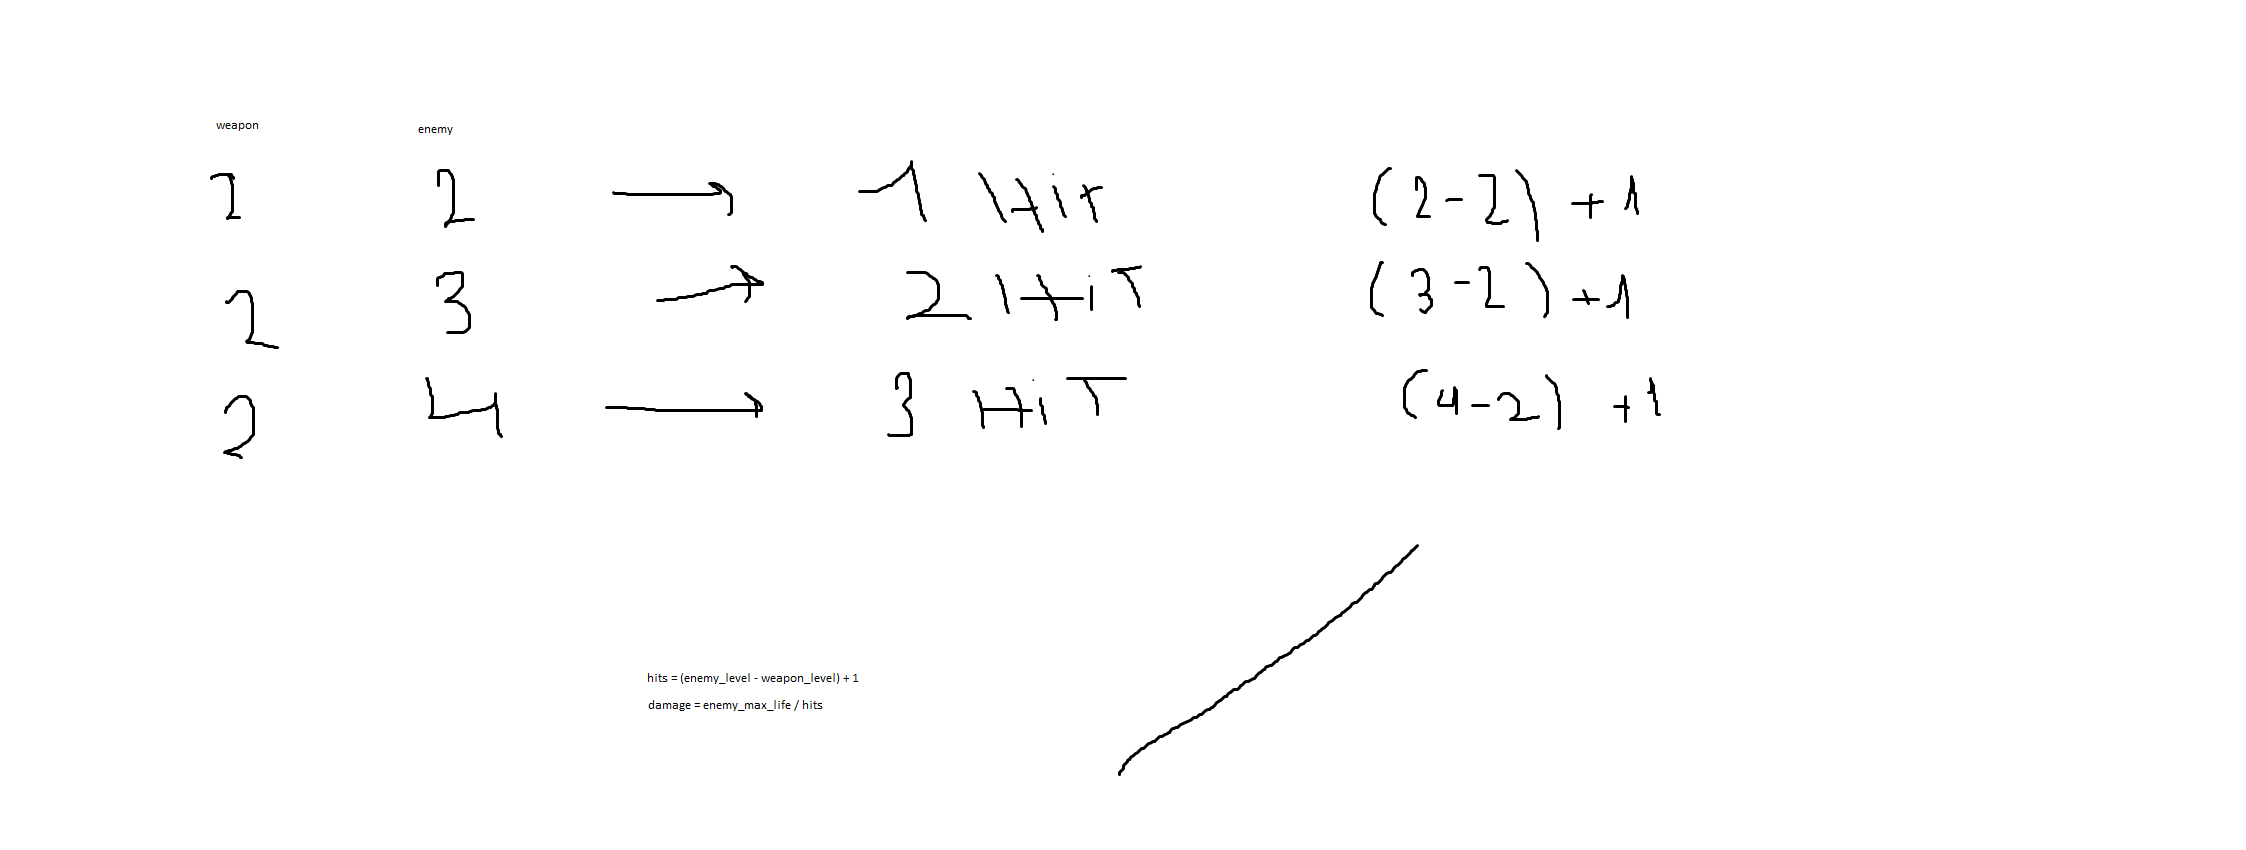 weapon enemy
2 2 → 1 Hit (2-2) +1
2 3 → 2 HiT (3-2) +1
2 4 → 3 HiT (4-2) +1
hits = (enemy_level - weapon_level) + 1
damage = enemy_max_life / hits